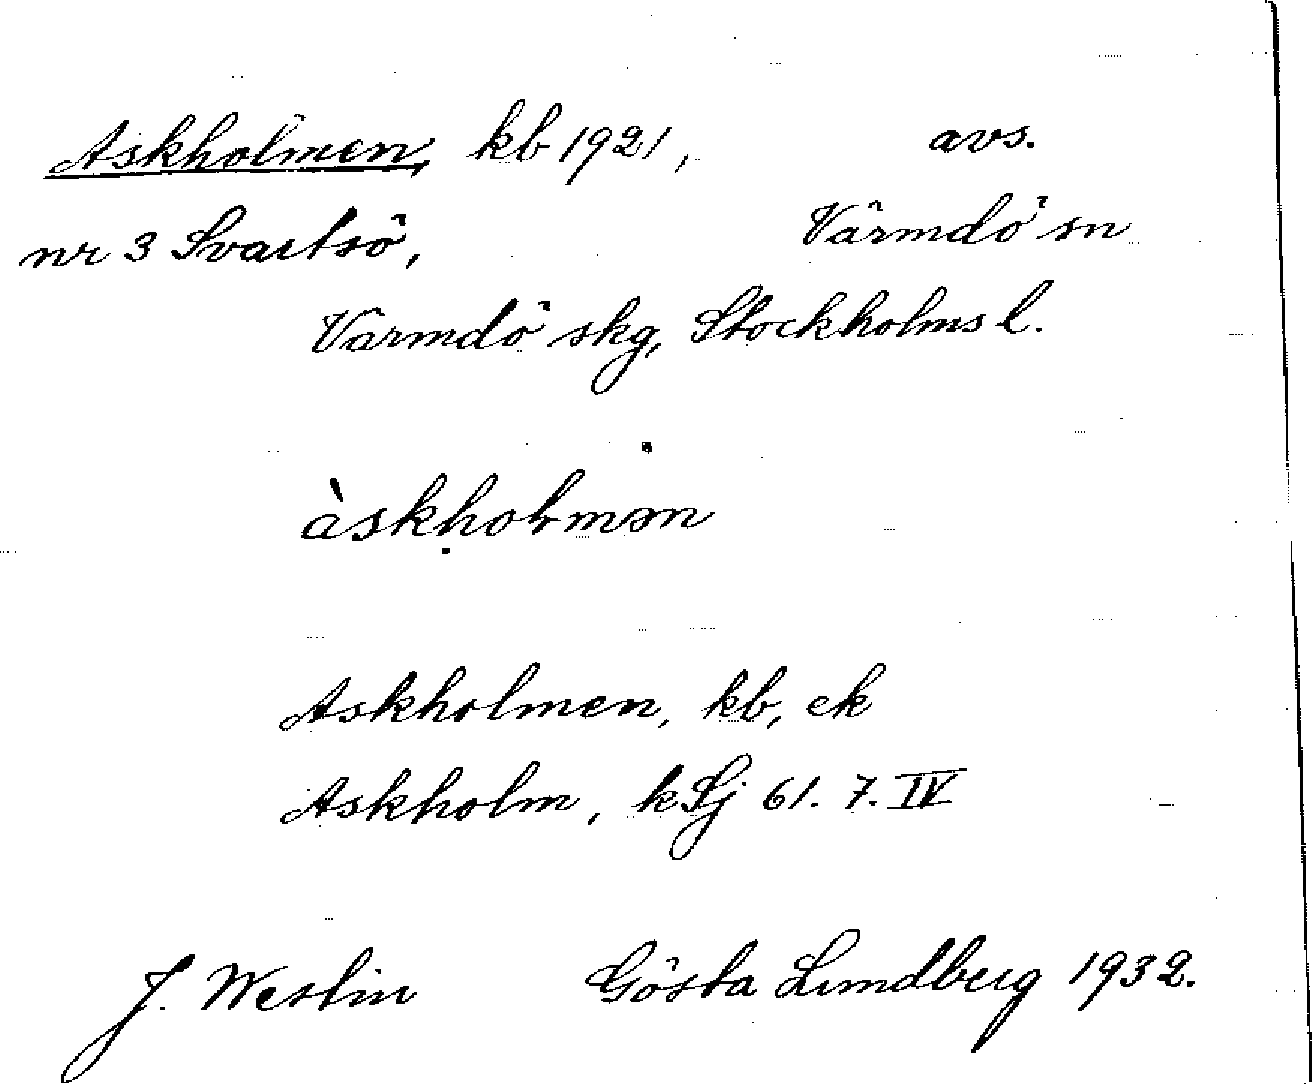 Askholmen, kb 1921, avs.
nr 3 Svartsö, Värmdö sn
Värmdö skg, Stockholms l.
àskhoļmən
Askholmen, kb, ek
Askholm, kSj 61. 7. IV
J. Westin Gösta Lundberg 1932.